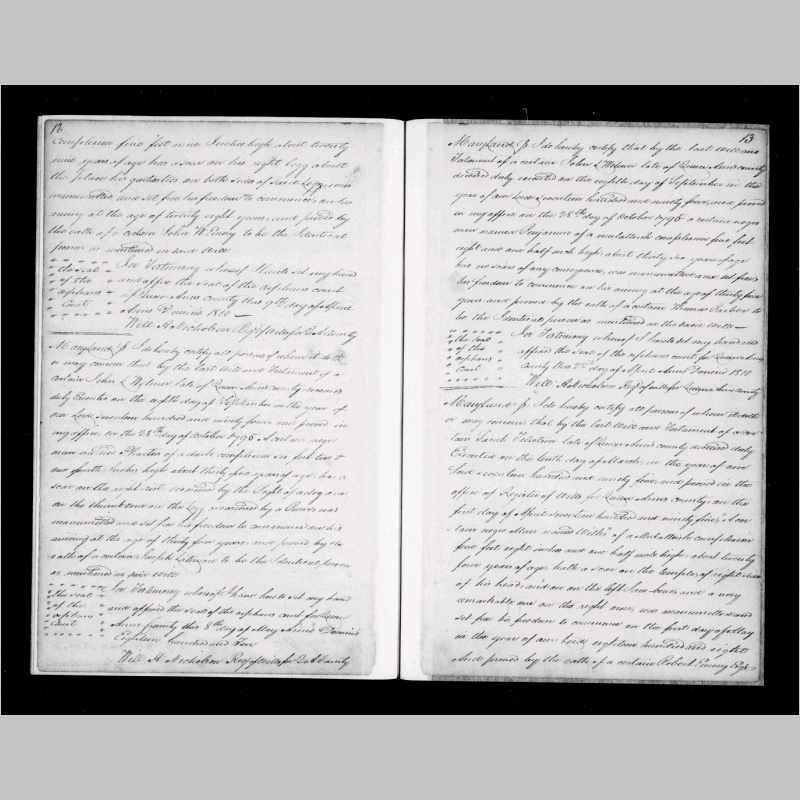 12
Complexion five feet nine Inches high about twenty
nine years of age has a scar on his right legg about
the place his garter ties on both sides of said Legg was
manumitted and set free his freedom to commence on his
arriving at the age of twenty eight years, and proved by
the oath of a certain John W. Emory to be the Identical
person as mentioned in said Will
the seal In Testimony whereof I have set my hand
of the and affix the seal of the orphans court
orphans of Queen Anns county this 9th day of April
Court Anno Domini 1810
Will H Nicholson Reg of Wills for Q A County
Maryland Ss I do hereby certify all persons of whom it doth
or may concern that by the last Will and Testament of a
certain John L Wilmer late of Queen Anns county deceased
duly Executed on the twelfth day of September in the year of
our Lord seventeen hundred and ninety four and proved in
my office on the 28th day of October 1796 A certain negro
man named of a dark complexion six feet two &
one fourth Inches high about thirty five years of age has a
scar on the right occasioned by the bight of a dog one
on the thumb one on the legg was
manumitted and set free his freedom to commence on his
arriving at the age of thirty five years and proved by the
oath of a certain Joseph to be the Identical person
as mentioned in said Will
the seal In Testimony whereof I have hereto set my hand
of the and affixed the seal of the orphans court for Queen
orphans Anns County this 8th day of May Anno Domini
Court Eighteen hundred and Ten
Will H Nicholson Reg of Wills for Q A County
13
Maryland Ss I do hereby certify that by the last Will and
Testament of a certain John L Wilmer late of Queen Anns county
deceased duly executed on the twelfth day of September in the
year of our Lord seventeen hundred and ninety four, and proved
in my office on the 28th day of October 1796 a certain negro
man named Benjamin of a mulattoish complexion five feet
eight and one half inch high about thirty six years of age
has no scars of any consequence, was manumitted and set free
his freedom to commence on his arriving at the age of thirty five
years and proved by the oath of a certain Thomas to
be the Identical person as mentioned in the said Will
the seal In Testimony whereof I have set my hand and
of the affixed the seal of the orphans court for Queen Anns
orphans County this day of April Anno Domini 1810
Court Will H Nicholson Reg of wills for Queen Anns county
Maryland Ss I do hereby certify all persons of whom it doth
or may concern that by the last Will and Testament of a cer
tain Sarah late of Queen Anns county deceased duly
Executed on the tenth day of March in the year of our
Lord seventeen hundred and ninety five and proved in the
office of Register of Wills for Queen Anns county on the
first day of April seventeen hundred and ninety five, A cer
tain negro Man named of a Mulattoish complexion
five feet eight inches and one half inch high about twenty
four years of age with a scar on the temple of right side
of his head and one on the left and a very
remarkable one on the right one, was manumitted and
set free his freedom to commence on the first day of May
in the year of our Lord eighteen hundred and eight
And proved by the oath of a certain Robert Emory Esqr